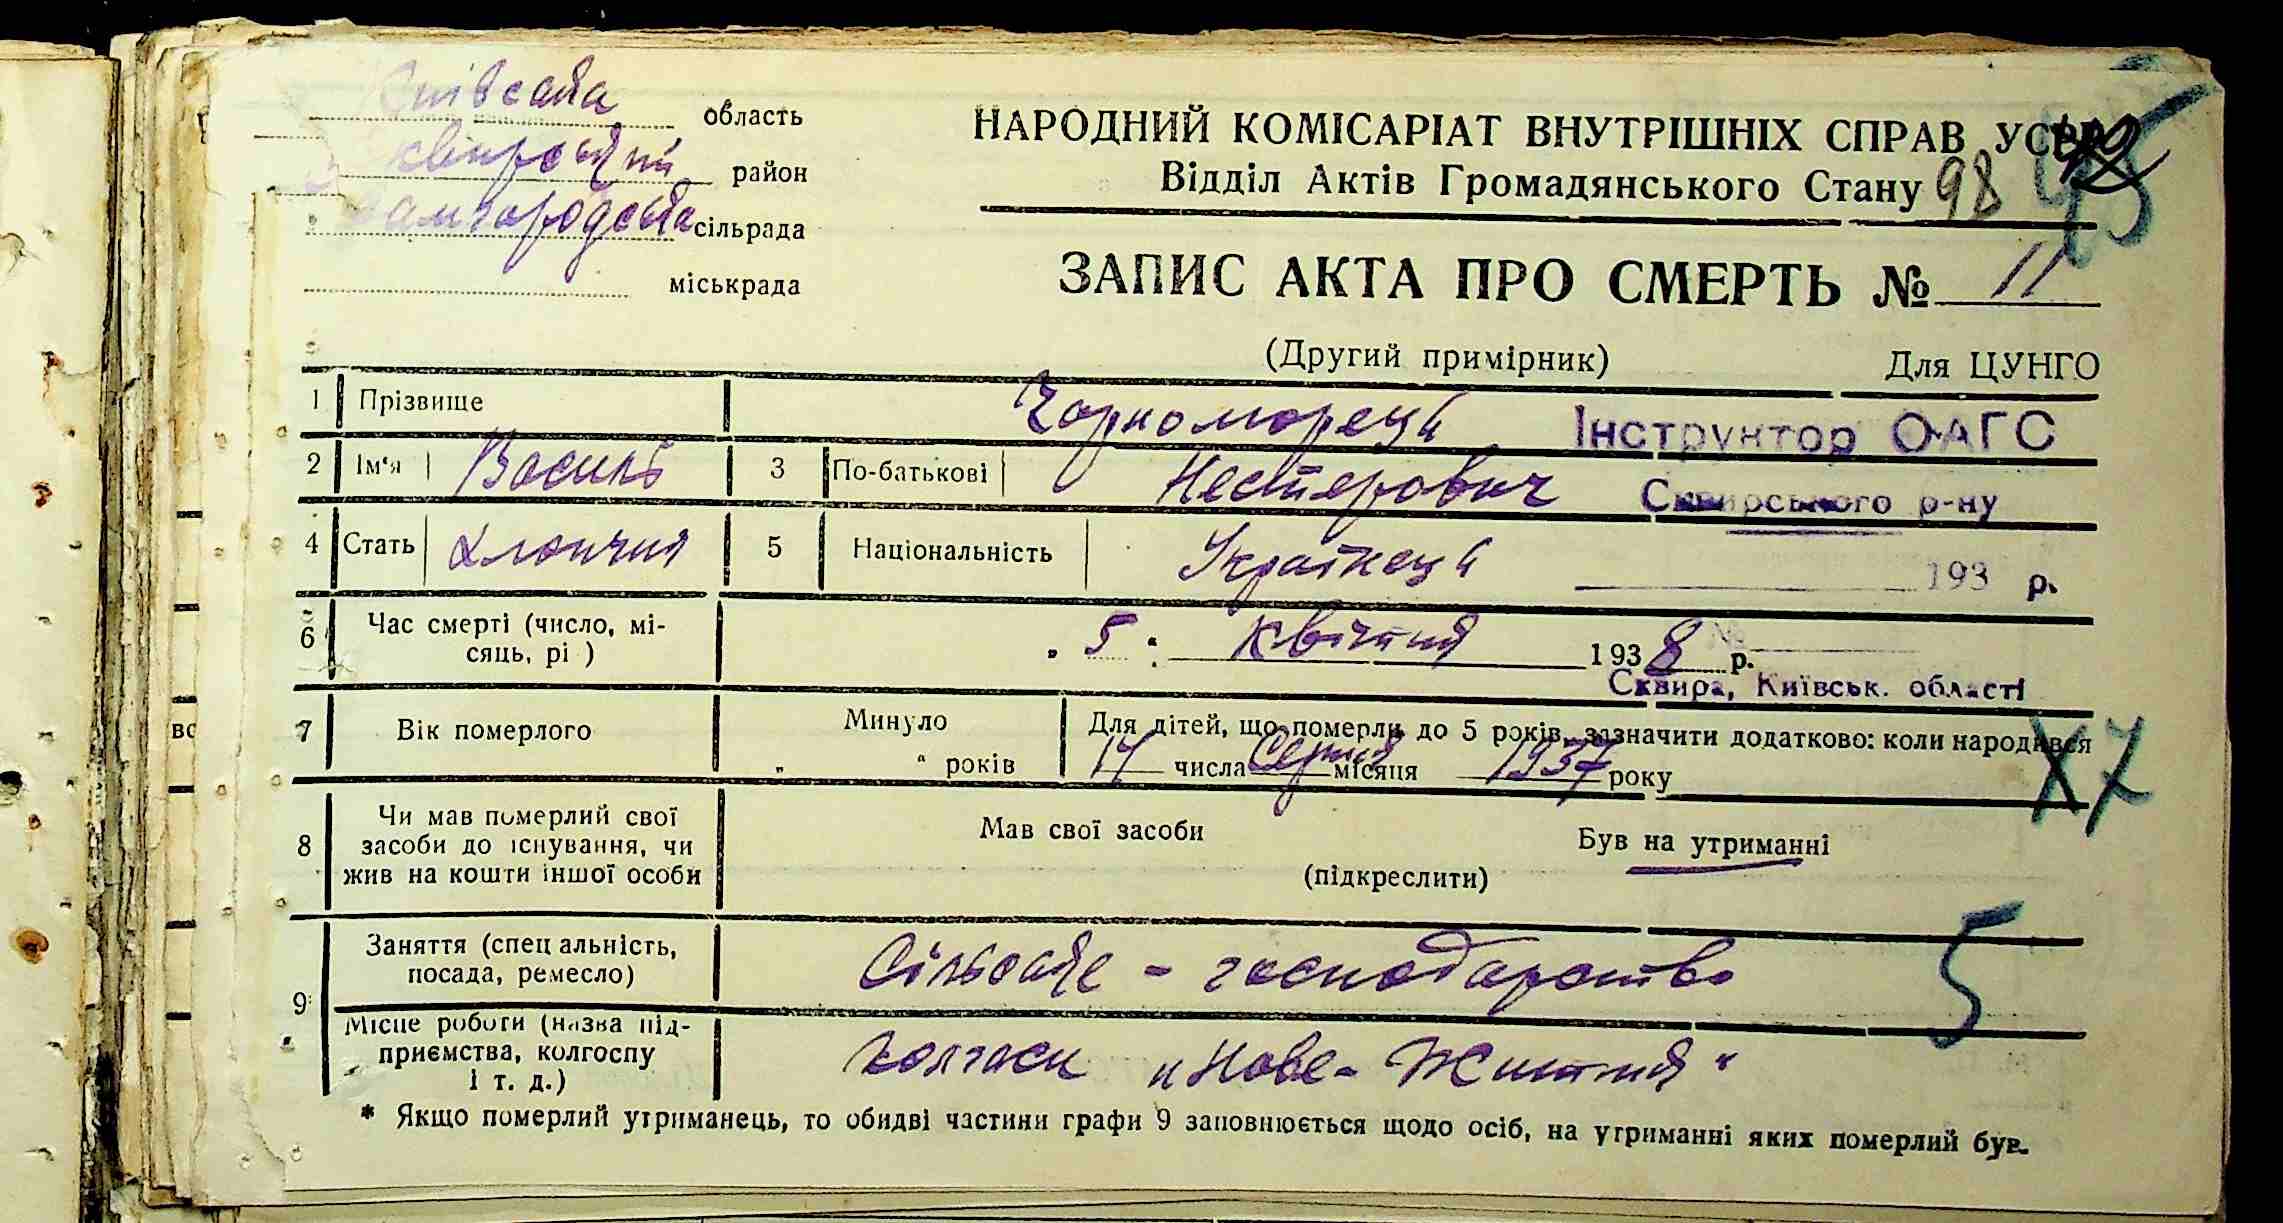 Київська область
Сквирський район
Самгородська сільрада
міськрада
НАРОДНИЙ КОМІСАРІАТ ВНУТРІШНІХ СПРАВ УСРР
Відділ Актів Громадянського Стану 98
ЗАПИС АКТА ПРО СМЕРТЬ № 11
(Другий примірник) Для ЦУНГО
1 Прізвище Чорноморець
Інструктор ОАГС
2 Ім'я Василь 3 По-батькові Нестерович
Сквирського р-ну
4 Стать хлопчик 5 Національність Українець
193 р.
6 Час смерті (число, мі-
сяць, рі ) „ 5 " квітня 1938 р.
Сквира, Київськ. області
7 Вік померлого Минуло
„ " років
Для дітей, що померли до 5 років, зазначити додатково: коли народився
17 числа Серпня місяця 1937 року
X7
8 Чи мав померлий свої
засоби до існування, чи
жив на кошти іншої особи
Мав свої засоби Був на утриманні
(підкреслити)
9 Заняття (спец альність,
посада, ремесло)
Сільське - господарство
5
Місце роботи (назва під-
приємства, колгоспу
і т. д.)
колгосп „Нове-Життя"
* Якщо померлий утриманець, то обидві частини графи 9 заповнюється щодо осіб, на утриманні яких померлий був.